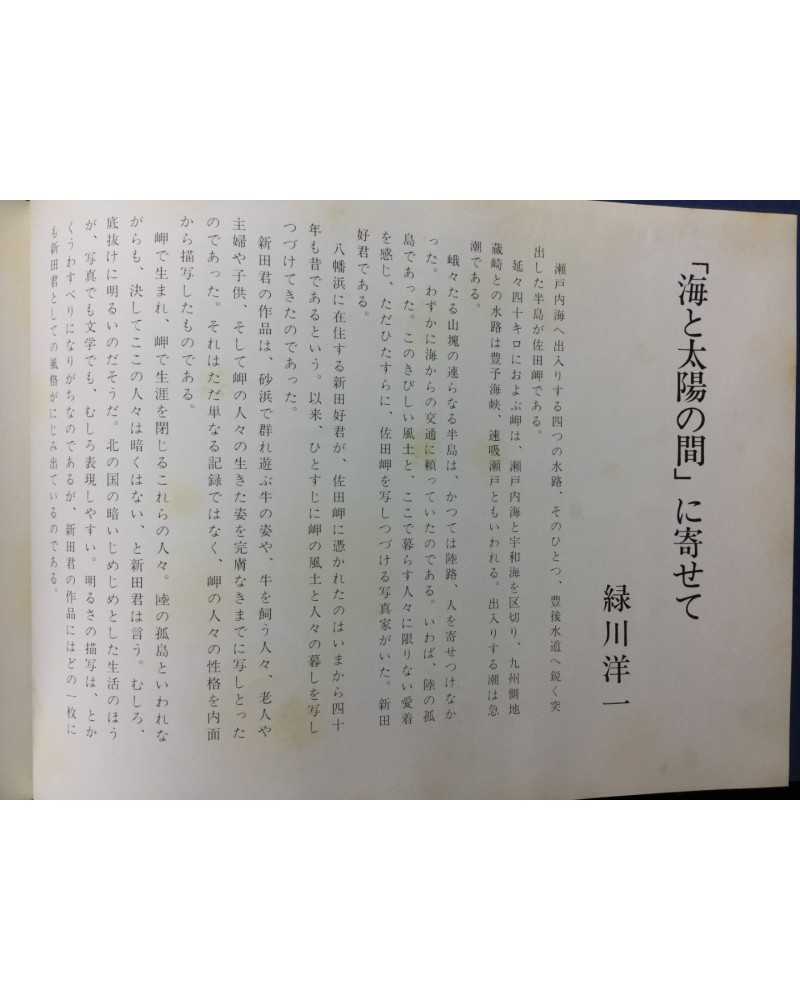 「海と太陽の間」に寄せて
緑川洋一
瀬戸内海へ出入りする四つの水路、そのひとつ、豊後水道へ鋭く突
出した半島が佐田岬である。
延々四十キロにおよぶ岬は、瀬戸内海と宇和海を区切り、九州側地
蔵崎との水路は豊予海峡、速吸瀬戸ともいわれる。出入りする潮は急
潮である。
峨々たる山塊の連らなる半島は、かつては陸路、人を寄せつけなか
った。わずかに海からの交通に頼っていたのである。いわば、陸の孤
島であった。このきびしい風土と、ここで暮らす人々に限りない愛着
を感じ、ただひたすらに、佐田岬を写しつづける写真家がいた。新田
好君である。
八幡浜に在住する新田好君が、佐田岬に憑かれたのはいまから四十
年も昔であるという。以来、ひとすじに岬の風土と人々の暮しを写し
つづけてきたのであった。
新田君の作品は、砂浜で群れ遊ぶ牛の姿や、牛を飼う人々、老人や
主婦や子供、そして岬の人々の生きた姿を完膚なきまでに写しとった
のであった。それはただ単なる記録ではなく、岬の人々の性格を内面
から描写したものである。
岬で生まれ、岬で生涯を閉じるこれらの人々。陸の孤島といわれな
がらも、決してここの人々は暗くはない、と新田君は言う。むしろ、
底抜けに明るいのだそうだ。北の国の暗いじめじめとした生活のほう
が、写真でも文学でも、むしろ表現しやすい。明るさの描写は、とか
くうわすべりになりがちなのであるが、新田君の作品にはどの一枚に
も新田君としての風格がにじみ出ているのである。